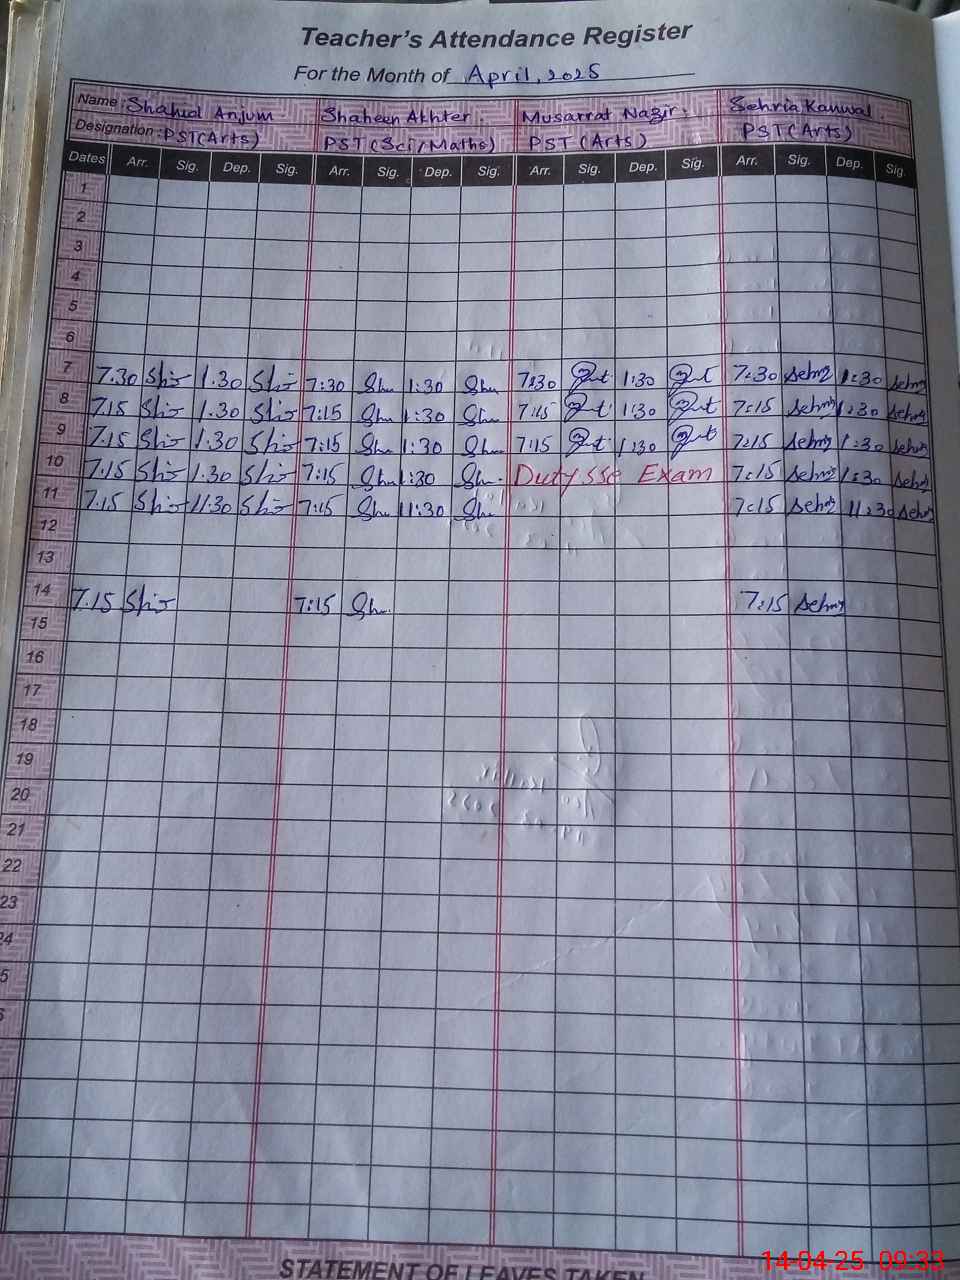 Teacher's Attendance Register
For the Month of April, 2025
Name: Shahid Anjum. Shaheen Akhter. Musarrat Nazir. Sehria Kanwal.
Designation: PST(Arts) PST (Sci/Maths) PST (Arts) PST(Arts)
Dates Arr. Sig. Dep. Sig. Arr. Sig. Dep. Sig. Arr. Sig. Dep. Sig. Arr. Sig. Dep. Sig.
1
2
3
4
5
6
7 7.30 1.30 7:30 Sh 1:30 Sh 7:30 1:30 7:30 1:30
8 7.15 1.30 7:15 Sh 1:30 Sh 7:15 1:30 7:15 1:30
9 7.15 1.30 7:15 Sh 1:30 Sh 7:15 1:30 7:15 1:30
10 7.15 1.30 7:15 Sh 1:30 Sh Duty SSC Exam 7:15 1:30
11 7.15 11.30 7:15 Sh 11:30 Sh 7:15 11:30
12
13
14 7.15 7:15 Sh 7:15
15
16
17
18
19
20
21
22
23
24
5
STATEMENT OF LEAVES TAKEN
14-04-25 09:33